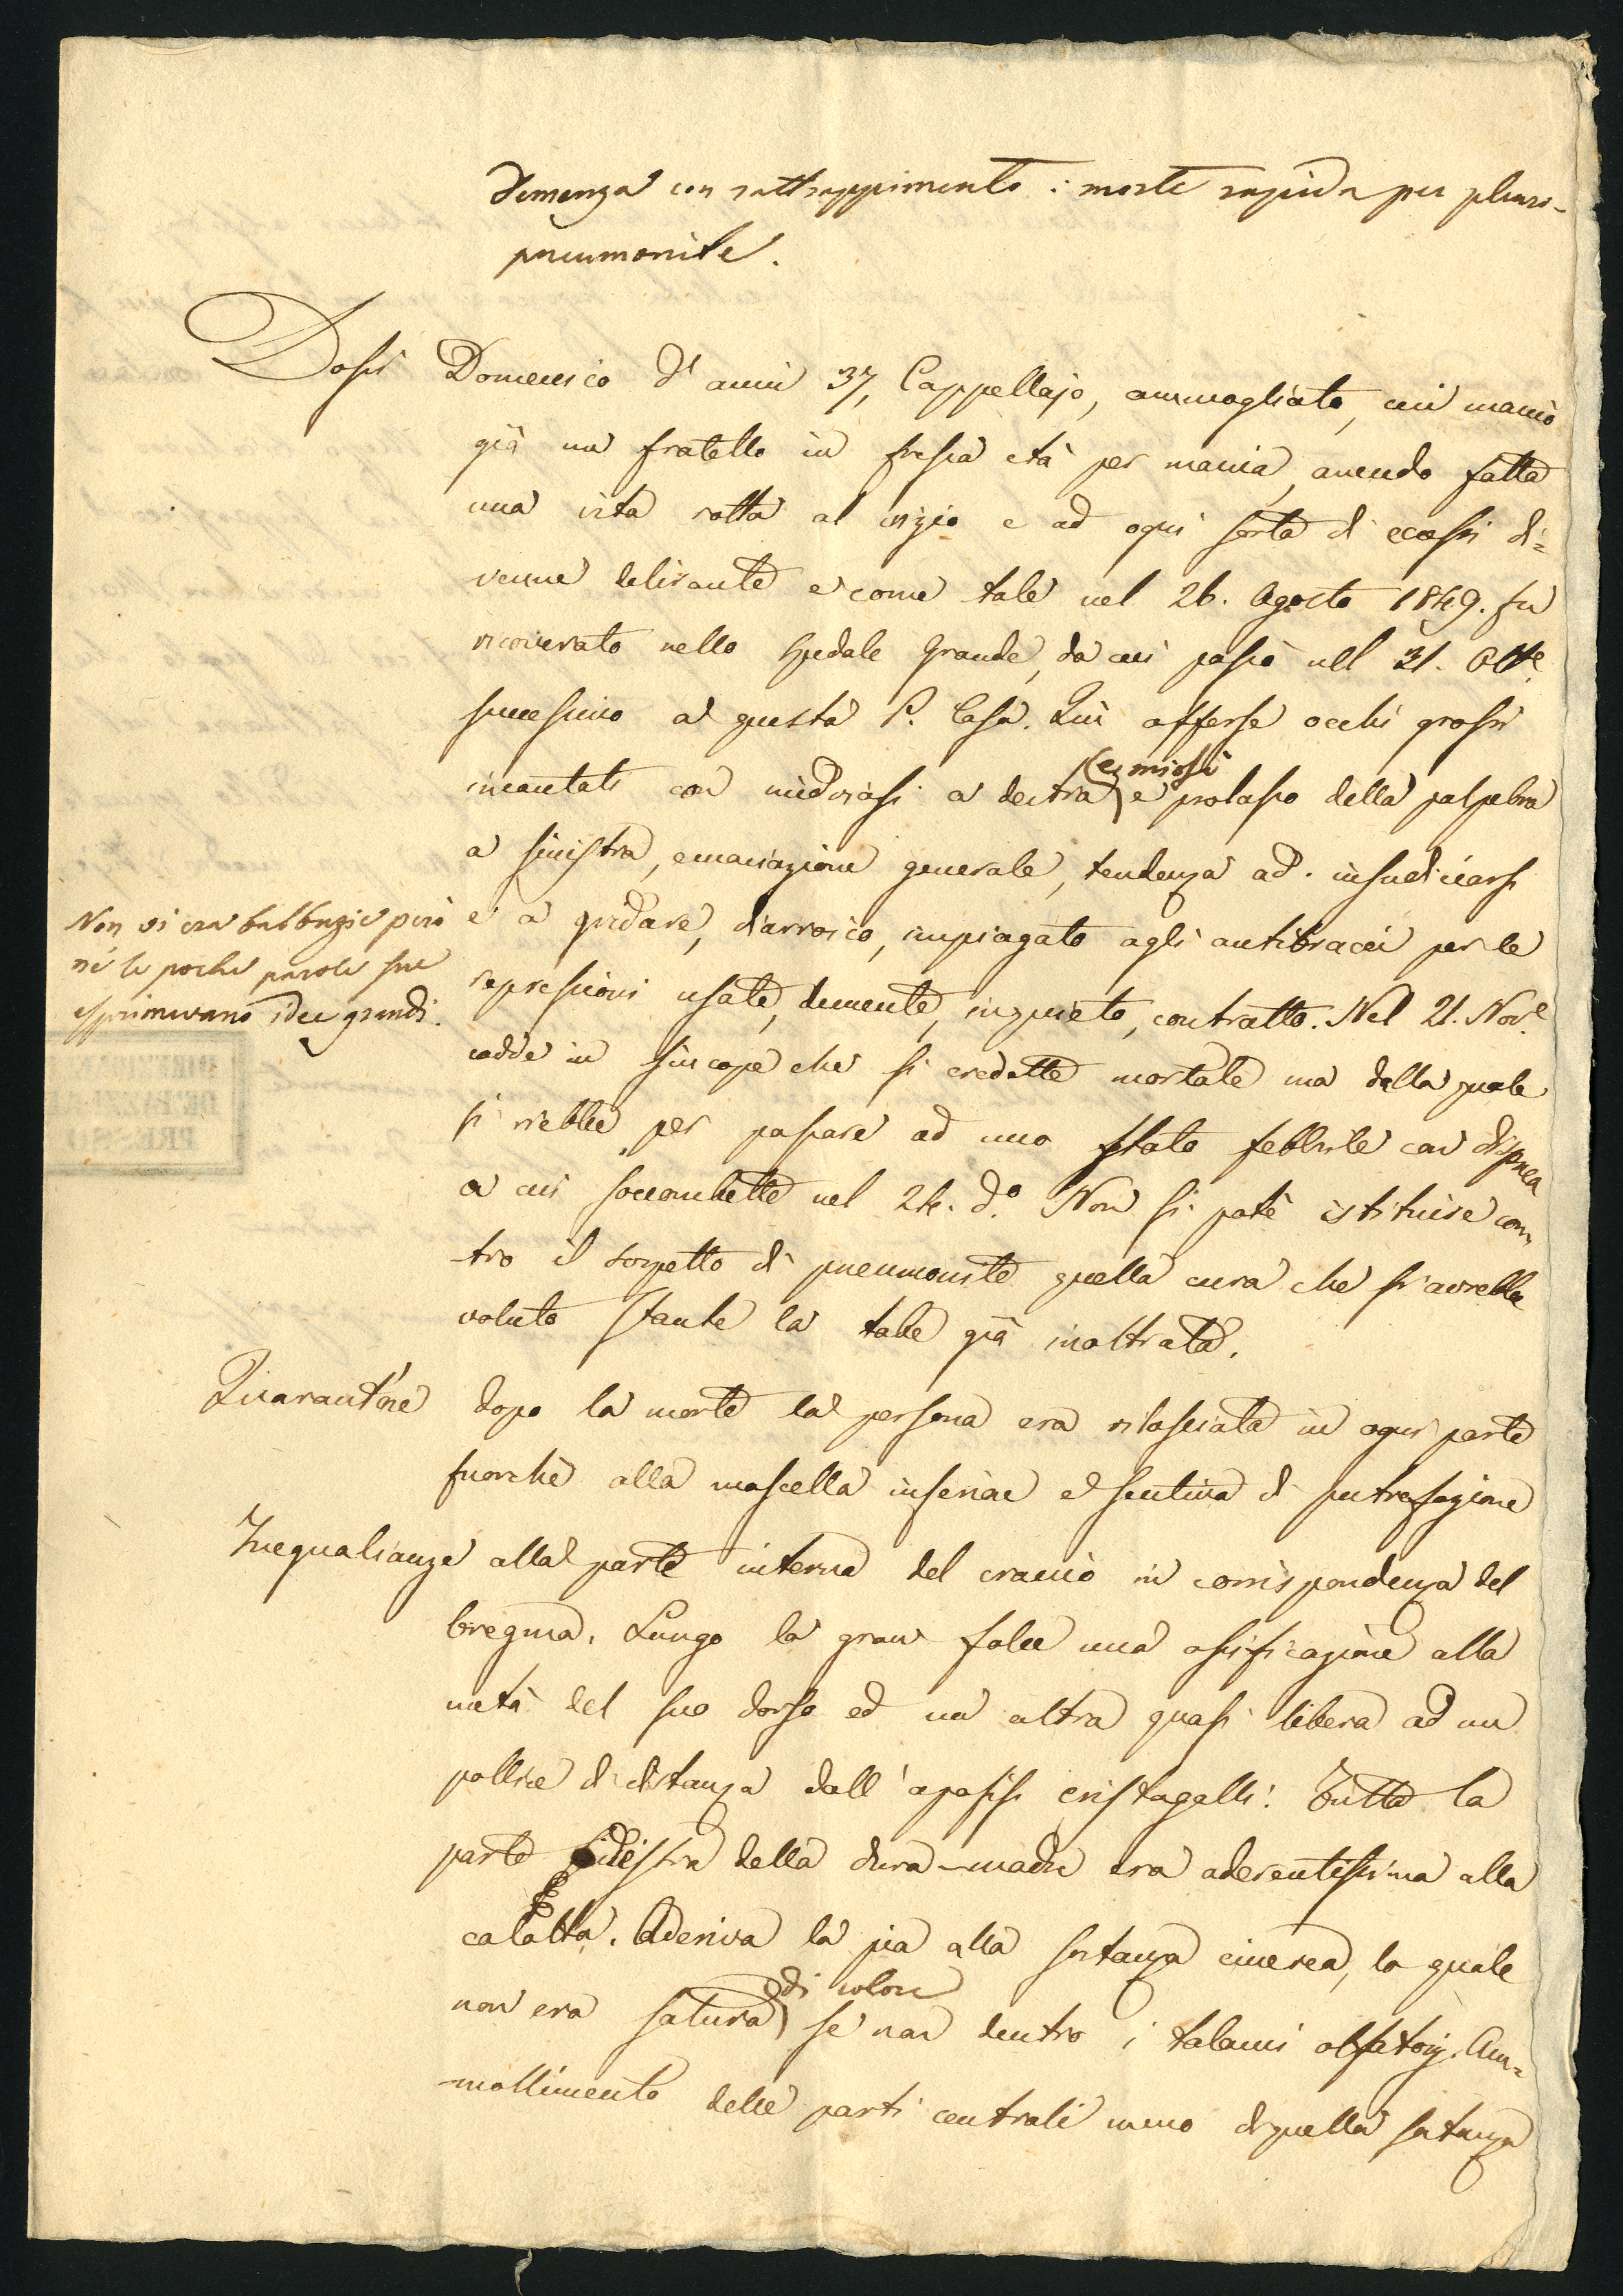 Demenza con rattrappimento: morte rapida per pleuro-
pneumonite.
Dossi Domenico d'anni 37, Cappellajo, ammogliato, cui mancò
già un fratello in fresca età per mania, avendo fatta
una vita rotta al vizio e ad ogni sorta di eccessi di=
venne delirante e come tale nel 26. Agosto 1849. fu
ricoverato nello Spedale Grande, da cui passò nel 31. Ott.e
successivo a questa P. Casa. Qui offerse occhi grossi
incantati con midriasi a destra e miosi e prolasso della palpebra
a sinistra, emaciazione generale, tendenza ad insudiciarsi
e a gridare, diarroico, impiagato agli antibracci per le
repressioni usate, demente, inquieto, contratto. Nel 21. Nov.e
cadde in sincope che si credette mortale ma dalla quale
si riebbe per passare ad uno stato febbrile con dispnea
a cui soccombette nel 24. d.o Non si potè istituire con
tro il sospetto di pneumonite quella cura che si avrebbe
voluto stante la tabe già inoltrata.
Non vi era balbuzie però
nè le poche parole sue
esprimevano idee grandi.
DIREZIONE
DE' PAZZI
PRESSO
Quarant'ore dopo la morte la persona era rilasciata in ogni parte
fuorchè alla mascella inferiore e sentiva di putrefazione
Inegualianze alla parte interna del cranio in corrispondenza del
bregma. Lungo la gran falce una ossificazione alla
metà del suo dorso ed un altra quasi libera ad un
pollice di distanza dall'apofisi cristagalli. Tutta la
parte destra della dura-madre era aderentissima alla
calotta. Aderiva la pia alla sostanza cinerea, la quale
non era satura di colore se non dentro i talami olfatorj. Am=
mollimento delle parti centrali meno di quella sostanza